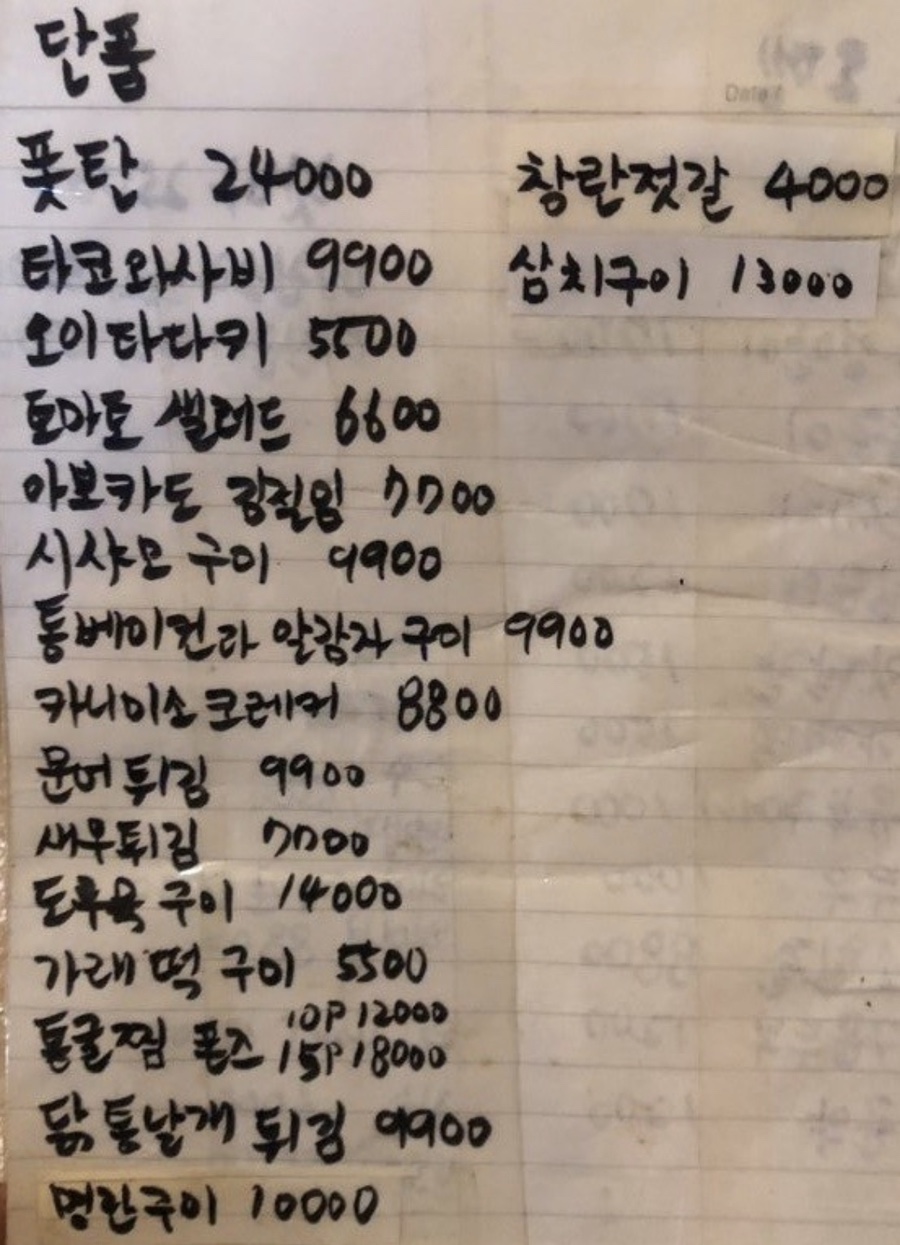 단품
Date /
폿탄 24000
타코와사비 9900
오이타다키 5500
토마토 샐러드 6600
아보카도 김절임 7700
시샤모 구이 9900
통베이컨과 알감자 구이 9900
카니미소 코레커 8800
문어 튀김 9900
새우튀김 7700
도루묵 구이 14000
가래떡 구이 5500
통굴찜 폰즈 10P 12000
15P 18000
닭 통날개 튀김 9900
명란구이 10000
창란젓갈 4000
삼치구이 13000